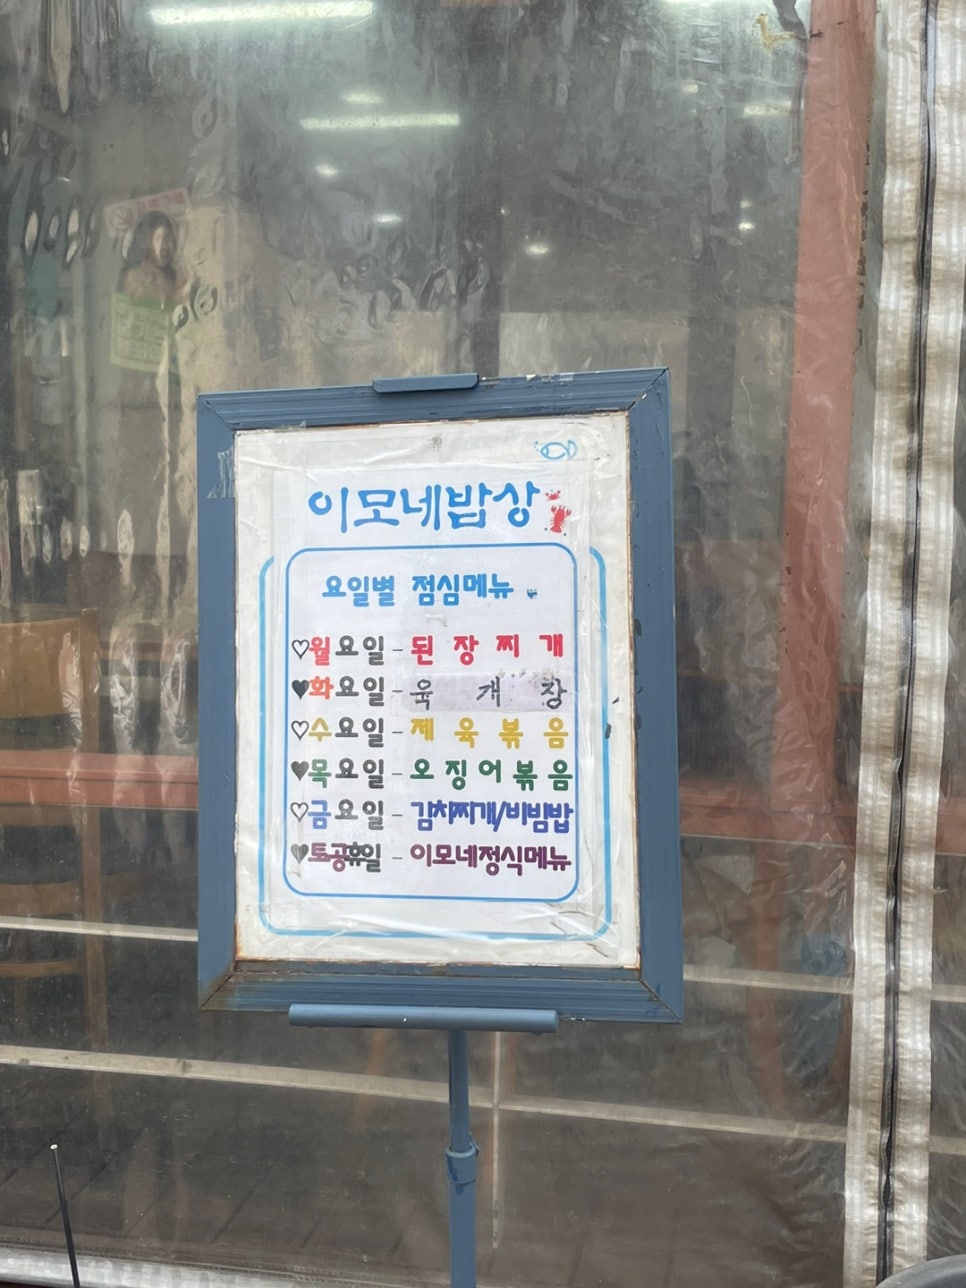 이모네밥상
요일별 점심메뉴
♡월요일 - 된장찌개
♥화요일 - 육개장
♡수요일 - 제육볶음
♥목요일 - 오징어볶음
♡금요일 - 김치찌개/비빔밥
♥토공휴일 - 이모네정식메뉴